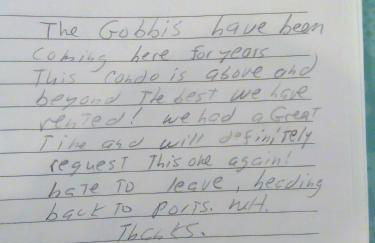 The Gobbis have been
coming here for years
This condo is above and
beyond The best we have
rented! we had a Great
Time and will definitely
request This one again!
hate To leave, heading
back to Ports. NH.
Thanks.